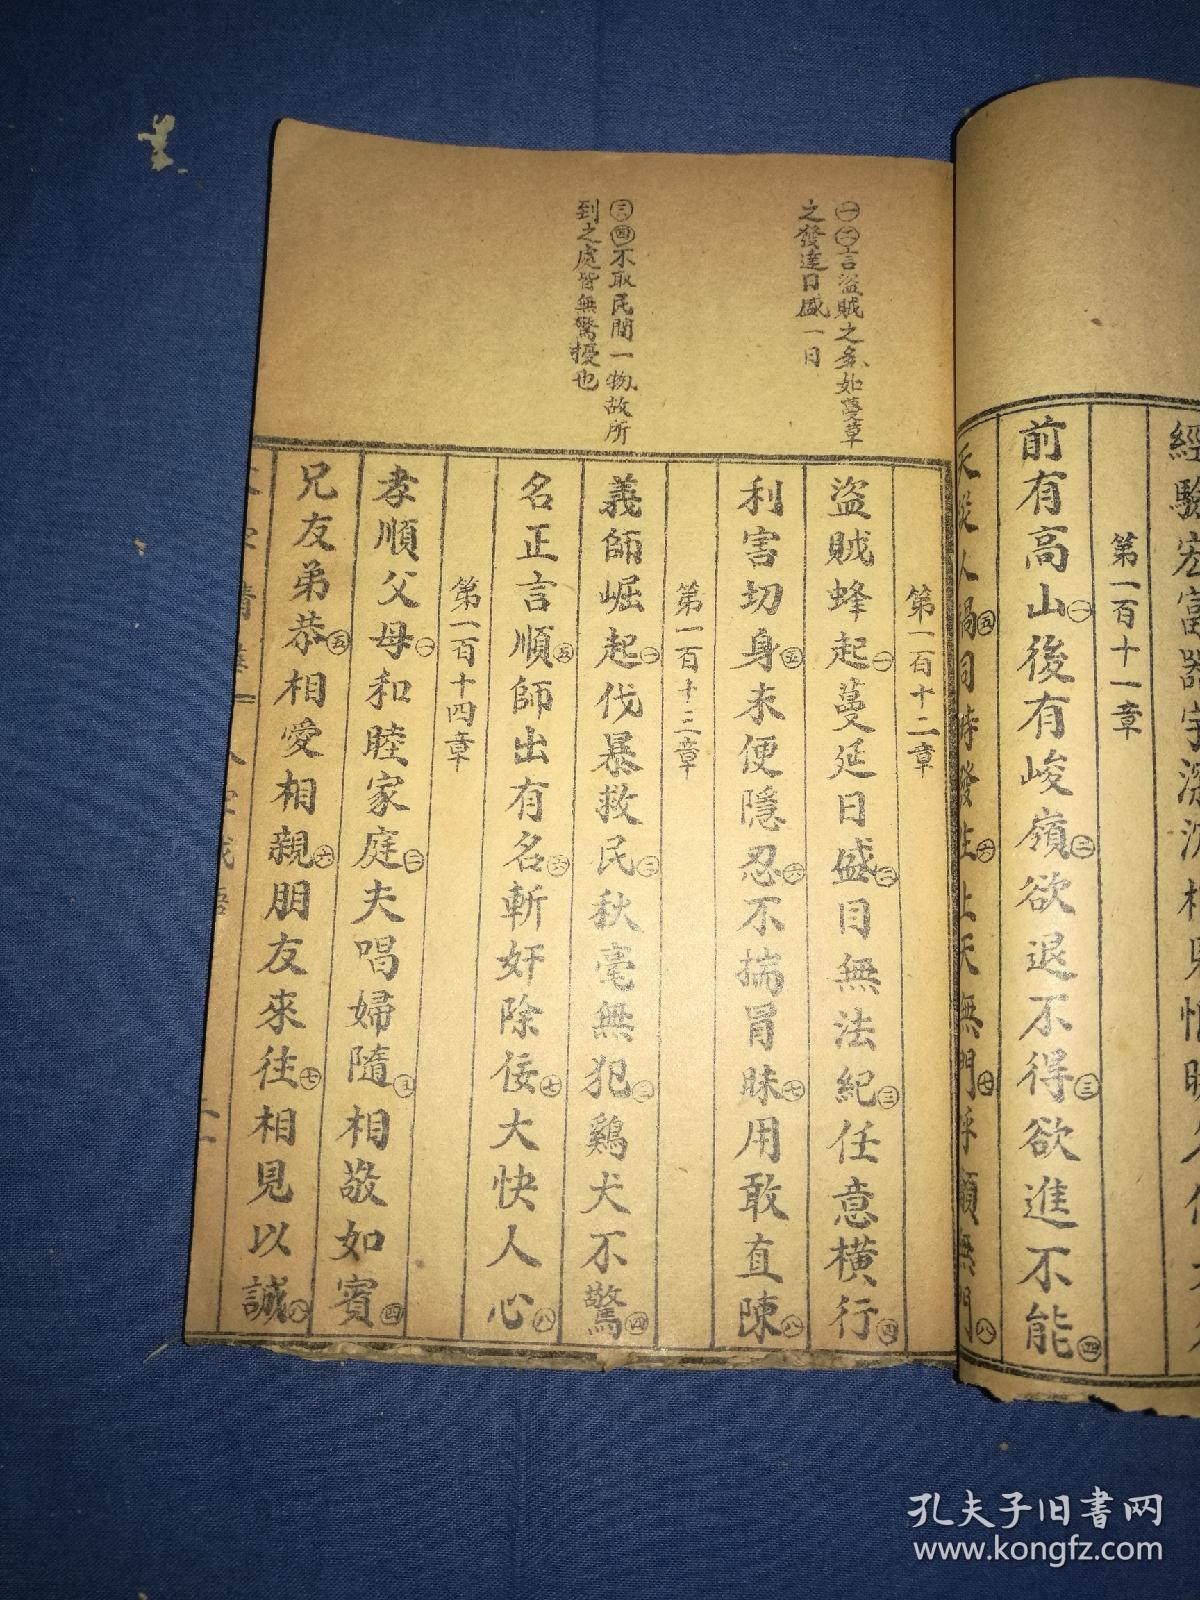 經驗宏富器宇深沉相見恨晚
第一百十一章
前有高山㊀後有峻嶺㊁欲退不得㊂欲進不能㊃
同時發
上天無門㊆呼籲無門㊇
㊀㊁言盜賊之多如蔓草
之發達日盛一日
㊂㊃不取民間一物故所
到之處皆無驚擾也
第一百十二章
盜賊蜂起㊀蔓延日盛㊁目無法紀㊂任意橫行㊃
利害切身㊄未便隱忍㊅不揣冒昧㊆用敢直陳㊇
第一百十三章
義師崛起㊀伐暴救民㊁秋毫無犯㊂鷄犬不驚㊃
名正言順㊄師出有名㊅斬奸除佞㊆大快人心㊇
第一百十四章
孝順父母㊀和睦家庭㊁夫唱婦隨㊂相敬如賓㊃
兄友弟恭㊄相愛相親㊅朋友來往㊆相見以誠㊇
孔夫子旧书网
www.kongfz.com